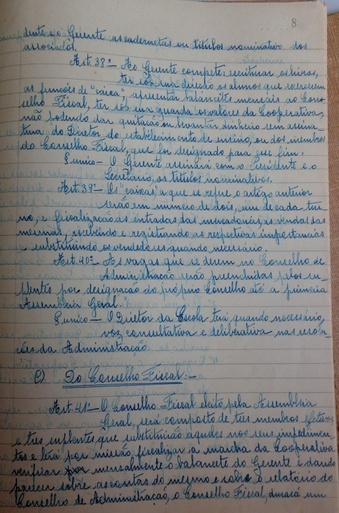 8
dente e o Gerente as cadernetas ou títulos nominativo dos
associados.
Art. 38º — Ao Gerente compete, escriturar os livros,
ter sob sua direção os alunos que exercerem
as funções de "caixa", apresentar balancetes mensais ao Conse-
lho Fiscal, ter sob sua guarda os valores da Cooperativa,
não podendo dar quitação ou levantar dinheiro sem assina-
tura do Diretor do estabelecimento de ensino, ou dos membros
do Conselho Fiscal, que for designado para esse fim.
§ único — O Gerente assinará com o Presidente e o
Secretário, os títulos nominativos.
Art. 39º — Os "caixas", a que se refere o artigo anterior
serão em número de dois, um de cada tur-
no, e fiscalização as entradas das mercadorias, e vendas das
mesmas, recebendo e registando as respetivas importancias
e substituindo os vendedores quando necessário.
Art. 40º — As vagas que se derem no Conselho de
Administração serão preenchidas pelos su-
plentes por designação do próprio Conselho até a primeira
Assembléia Geral.
§ único — O Diretor da Escola terá quando necessário,
voz consultativa e deliberativa nas resolu-
ções da Administração.
Do Conselho Fiscal:—
Art. 41º — O Conselho Fiscal eleito pela Assembléia
Geral, será composto de tres membros efetivos
e tres suplentes que substituirão aqueles nos seus impedimen-
tos e terá por missão fiscalizar a marcha da Cooperativa
verificar por mensalmente o balancete do Gerente e dando
parecer sobre as contas do mesmo e sobre o relatório do
Conselho de Administração, o Conselho Fiscal, durará um